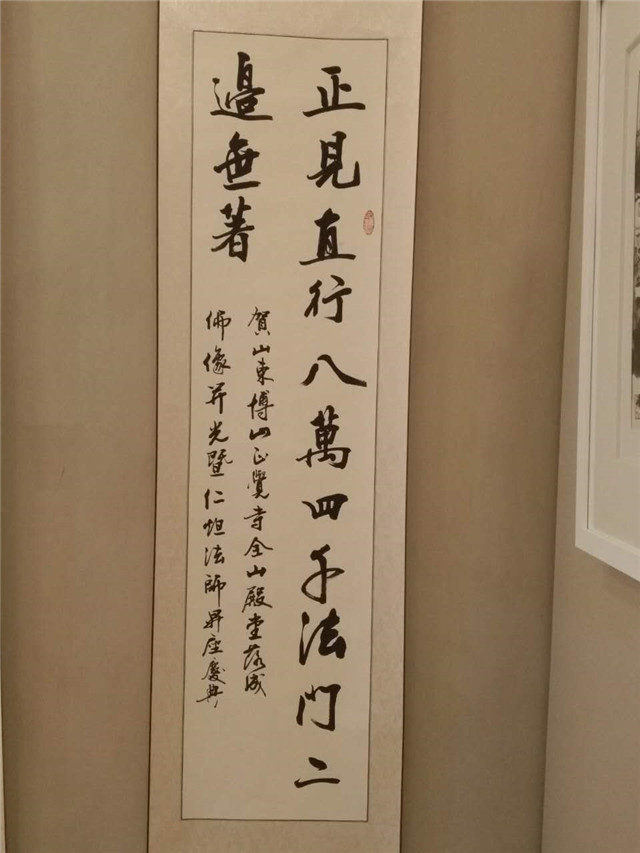 正見直行八萬四千法門二
邊無著
賀山東博山正覺寺全山殿堂落成
佛像开光暨仁炟法師昇座慶典